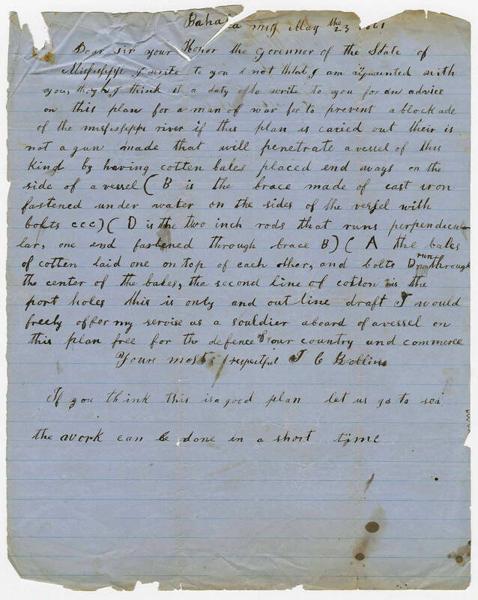 Baha a Miss May the 23 1861
Dear Sir your Honor the Govennor of the State of
Missisippi I write to you I not that I am aquainted with
you, tho I think it a duty to write to you for an advice
on this plan for a man of war for to prevent a blockade
of the missisippi river if this plan is caried out their is
not a gun made that will penetrate a vessel of this
Kind by having cotten bales placed end ways on the
side of a vessel ( B is the brace made of cast iron
fastened under water on the sides of the vessel with
bolts ccc) ( D is the two inch rods that runs perpendicu
lar, one end fastened through brace B) ( A the bales
of cotten laid one on top of each other, and bolts D run through
the center of the bales, the second line of cotton is the
port holes this is only and out line draft I would
freely offer my servise as a souldier aboard of a vessel on
this plan free for the defence of our country and commerce
Yours most respectful J C Rollins
If you think this is a good plan let us go to
the work can be done in a short time